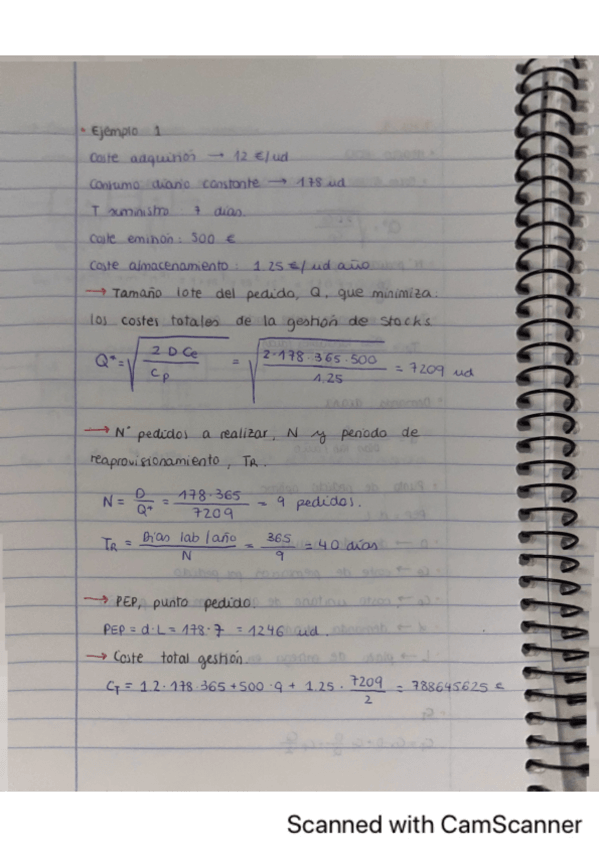 • Ejemplo 1
Coste adquirión → 12 €/ud
Consumo diario constante → 178 ud
T suministro : 7 días
Coste emisión : 500 €
Coste almacenamiento : 1.25 €/ud año
→ Tamaño lote del pedido, Q, que minimiza
los costes totales de la gestión de stocks
Q* = √(2 D Ce / Cp) = √(2·178·365·500 / 1.25) = 7209 ud
→ Nº pedidos a realizar, N y periodo de
reaprovisionamiento, TR.
N = D / Q* = 178·365 / 7209 = 9 pedidos.
TR = Días lab/año / N = 365 / 9 = 40 días
→ PEP, punto pedido
PEP = d·L = 178·7 = 1246 ud.
→ Coste total gestión.
CT = 12·178·365 + 500·9 + 1.25 · 7209 / 2 = 788645625 €
Scanned with CamScanner